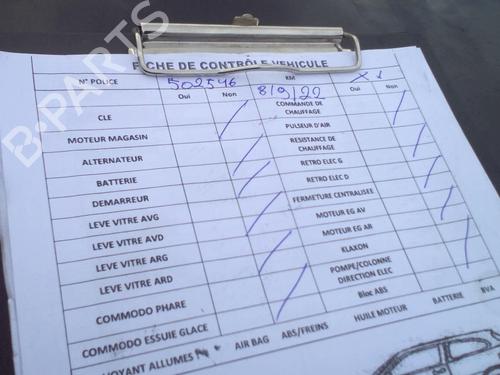 B-PARTS
FICHE DE CONTRÔLE VEHICULE
N° POLICE 502546 KM
Oui Non 8/9/22 Oui Non
CLE COMMANDE DE CHAUFFAGE
MOTEUR MAGASIN PULSEUR D'AIR
ALTERNATEUR RESISTANCE DE CHAUFFAGE
BATTERIE RETRO ELEC G
DEMARREUR RETRO ELEC D
LEVE VITRE AVG FERMETURE CENTRALISEE
LEVE VITRE AVD MOTEUR EG AV
LEVE VITRE ARG MOTEUR EG AR
LEVE VITRE ARD KLAXON
COMMODO PHARE POMPE/COLONNE DIRECTION ELEC
COMMODO ESSUIE GLACE Bloc ABS
VOYANT ALLUMES AIR BAG ABS/FREINS HUILE MOTEUR BATTERIE BVA